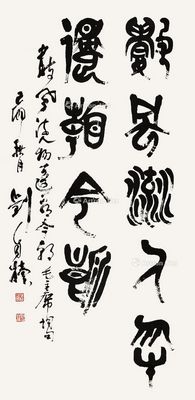 數風流人物
還看今朝
數風流人物還看今朝 毛主席詞句
己卯秋月
劉自櫝